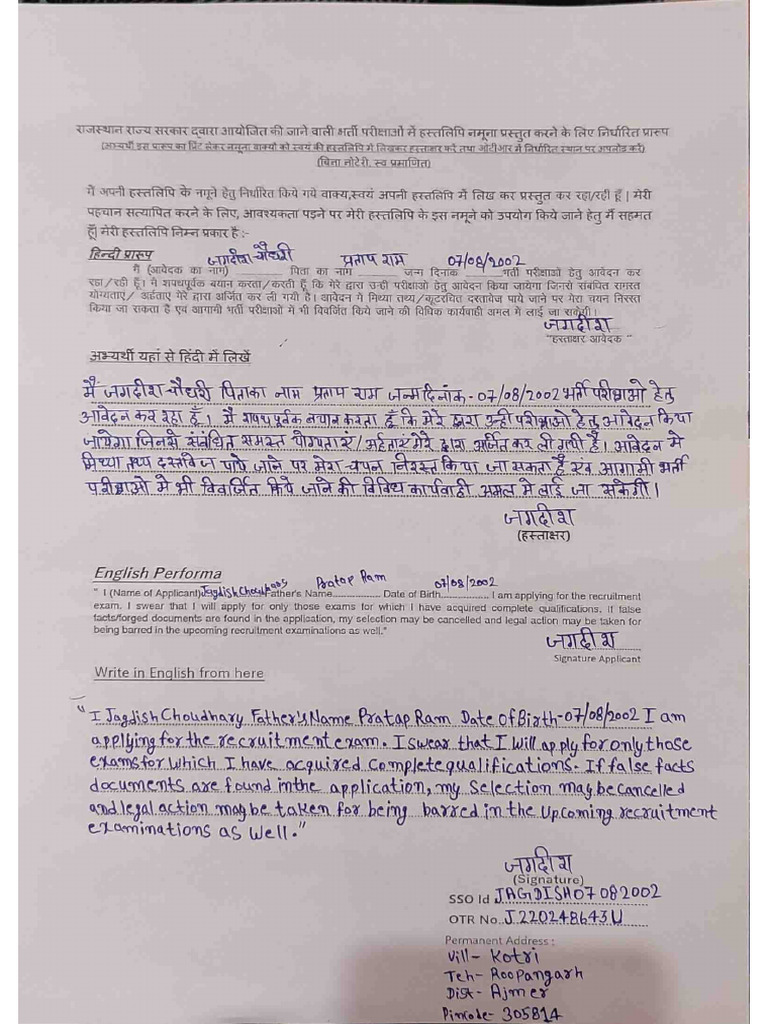 राजस्थान राज्य सरकार द्वारा आयोजित की जाने वाली भर्ती परीक्षाओं में हस्तलिपि नमूना प्रस्तुत करने के लिए निर्धारित प्रारूप
(अभ्यर्थी इस प्रारूप का प्रिंट लेकर नमूना वाक्यों को स्वयं की हस्तलिपि में लिखकर हस्ताक्षर करें तथा ओटीआर में निर्धारित स्थान पर अपलोड करें)
(बिना नोटेरी, स्व प्रमाणित)
मैं अपनी हस्तलिपि के नमूने हेतु निर्धारित किये गये वाक्य,स्वयं अपनी हस्तलिपि में लिख कर प्रस्तुत कर रहा/रही हूँ | मेरी
पहचान सत्यापित करने के लिए, आवश्यकता पड़ने पर मेरी हस्तलिपि के इस नमूने को उपयोग किये जाने हेतु मैं सहमत
हूँ| मेरी हस्तलिपि निम्न प्रकार है :-
हिन्दी प्रारूप
जगदीश चौधरी प्रताप राम 07/08/2002
मैं (आवेदक का नाम) ............ पिता का नाम ............ जन्म दिनांक ............ भर्ती परीक्षाओं हेतु आवेदन कर
रहा/रही हूँ। मैं शपथपूर्वक बयान करता/करती हूँ कि मेरे द्वारा उन्ही परीक्षाओ हेतु आवेदन किया जायेगा जिनसे संबंधित समस्त
योग्यताएं/ अर्हताएं मेरे द्वारा अर्जित कर ली गयी है। आवेदन में मिथ्या तथ्य/कूटरचित दस्तावेज पाये जाने पर मेरा चयन निरस्त
किया जा सकता है एवं आगामी भर्ती परीक्षाओं में भी विवर्जित किये जाने की विधिक कार्यवाही अमल में लाई जा सकेगी।
जगदीश
"हस्ताक्षर आवेदक "
अभ्यर्थी यहां से हिंदी में लिखें
मैं जगदीश चौधरी पिता का नाम प्रताप राम जन्मदिनांक-07/08/2002 भर्ती परीक्षाओ हेतु
आवेदन कर रहा हूँ। मैं शपथपूर्वक बयान करता हूँ कि मेरे द्वारा उन्ही परीक्षाओ हेतु आवेदन किया
जायेगा जिनसे संबंधित समस्त योग्यताए/अर्हताए मेरे द्वारा अर्जित कर ली गयी है। आवेदन मे
मिथ्या तथ्य दस्तावेज पाये जाने पर मेरा चयन निरस्त किया जा सकता है एव आगामी भर्ती
परीक्षाओ मे भी विवर्जित किये जाने की विविध कार्यवाही अमल मे लाई जा सकेगी।
जगदीश
(हस्ताक्षर)
English Performa
Jagdish Choudhary Pratap Ram 07/08/2002
" I (Name of Applicant) Father's Name.................. Date of Birth.................. I am applying for the recruitment
exam. I swear that I will apply for only those exams for which I have acquired complete qualifications. If false
facts/forged documents are found in the application, my selection may be cancelled and legal action may be taken for
being barred in the upcoming recruitment examinations as well."
जगदीश
Signature Applicant
Write in English from here
"I Jagdish Choudhary Father's Name Pratap Ram Date Of Birth-07/08/2002 I am
applying for the recruitment exam. I swear that I Will apply for only those
exams for Which I have acquired Complete qualifications. If false facts
documents are found in the application, my Selection may be cancelled
and legal action may be taken for being barred in the Upcoming recruitment
examinations as Well."
जगदीश
(Signature)
SSO Id JAGDISH07082002
OTR No. J220248643U
Permanent Address :
Vill- Kotri
Teh- Roopangarh
Dist- Ajmer
Pincode- 305814